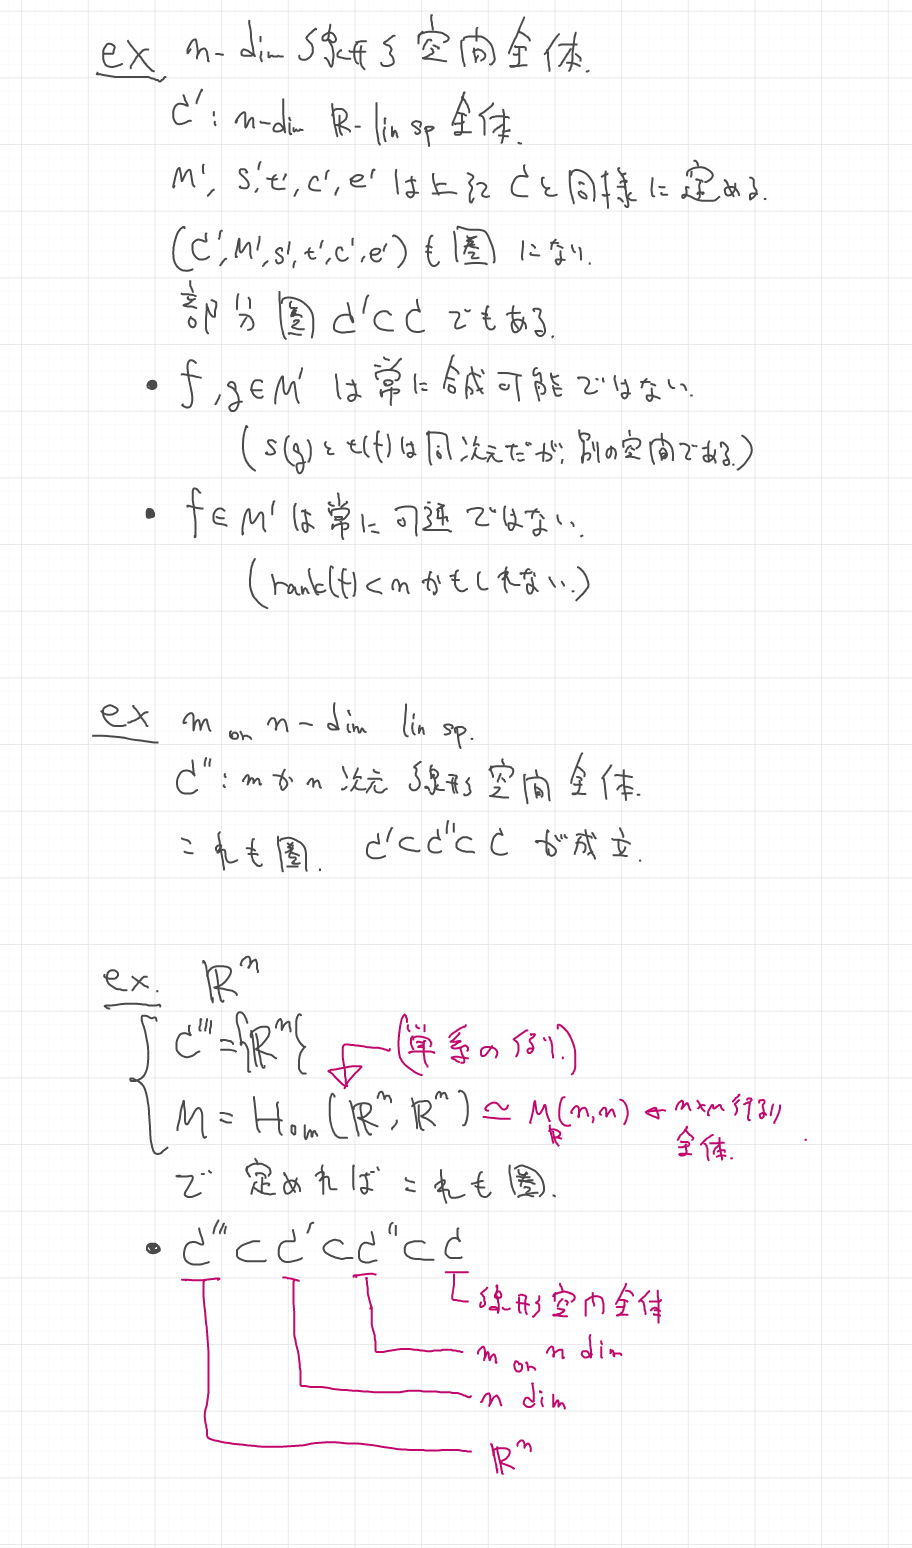 ex n-dim 線形空間全体.
C': n-dim ℝ-lin sp 全体.
M', s', t', c', e' は上記 C と同様に定める.
(C', M', s', t', c', e') も圏になり.
部分圏 C'⊂C でもある.
• f, g ∈ M' は常に合成可能ではない.
(s(g) と t(f) は同次元だが, 別の空間である.)
• f ∈ M' は常に可逆ではない.
(rank(f) < n かもしれない.)
ex m or n-dim lin sp.
C'': m か n 次元 線形空間全体.
これも圏. C'⊂C''⊂C が成立.
ex. ℝⁿ
C''' = {ℝⁿ} (単系の作り.)
M = Hom(ℝⁿ, ℝⁿ) ≃ M_ℝ(n,n) ← n×n 行列全体.
で定めればこれも圏.
• C'''⊂C'⊂C''⊂C
線形空間全体
m or n dim
n dim
ℝⁿ